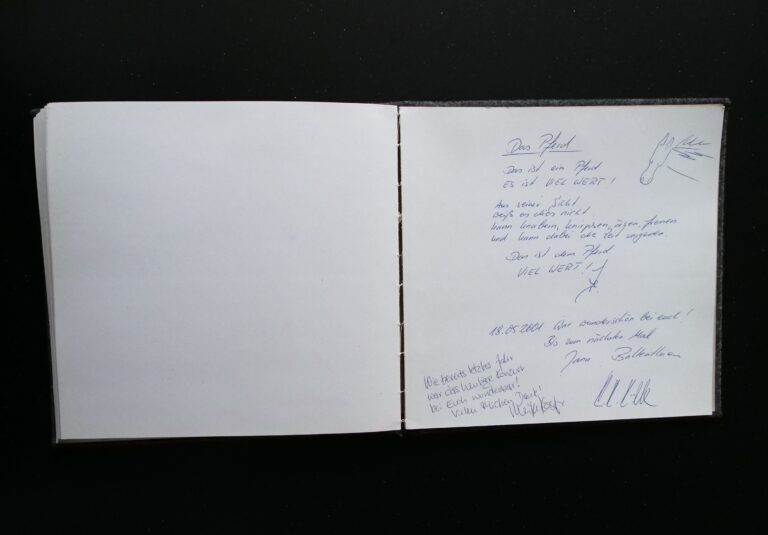 Das Pferd
Das ist ein Pferd
Es ist VIEL WERT!
Aus seiner Sicht
weiß es das nicht.
kann knabbern,
und kann dabei die Zeit
Das ist dem Pferd
VIEL WERT!
18.05.2001 War wunderschön bei euch!
Bis zum nächsten Mal
Jana
Wie bereits letztes Jahr
war das heutige Konzert
bei Euch wunderbar!
Vielen lieben Dank!